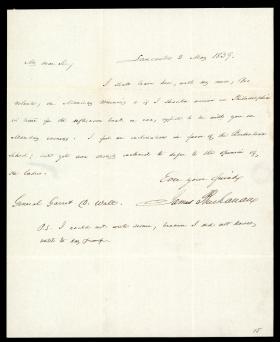 Lancaster 2 May 1839.
My dear Sir,
I shall leave here, with my niece, the
on Monday morning & if I should arrive in Philadelphia
in time for the afternoon boat or car, expect to be with you on
Monday evening. I feel an inclination in favor of the
school; but yet am strongly inclined to defer to the opinion of
the ladies.
Ever your friend
James Buchanan
General Garret D. Wall.
P.S. I could not write sooner, because I did not know,
until to day
15